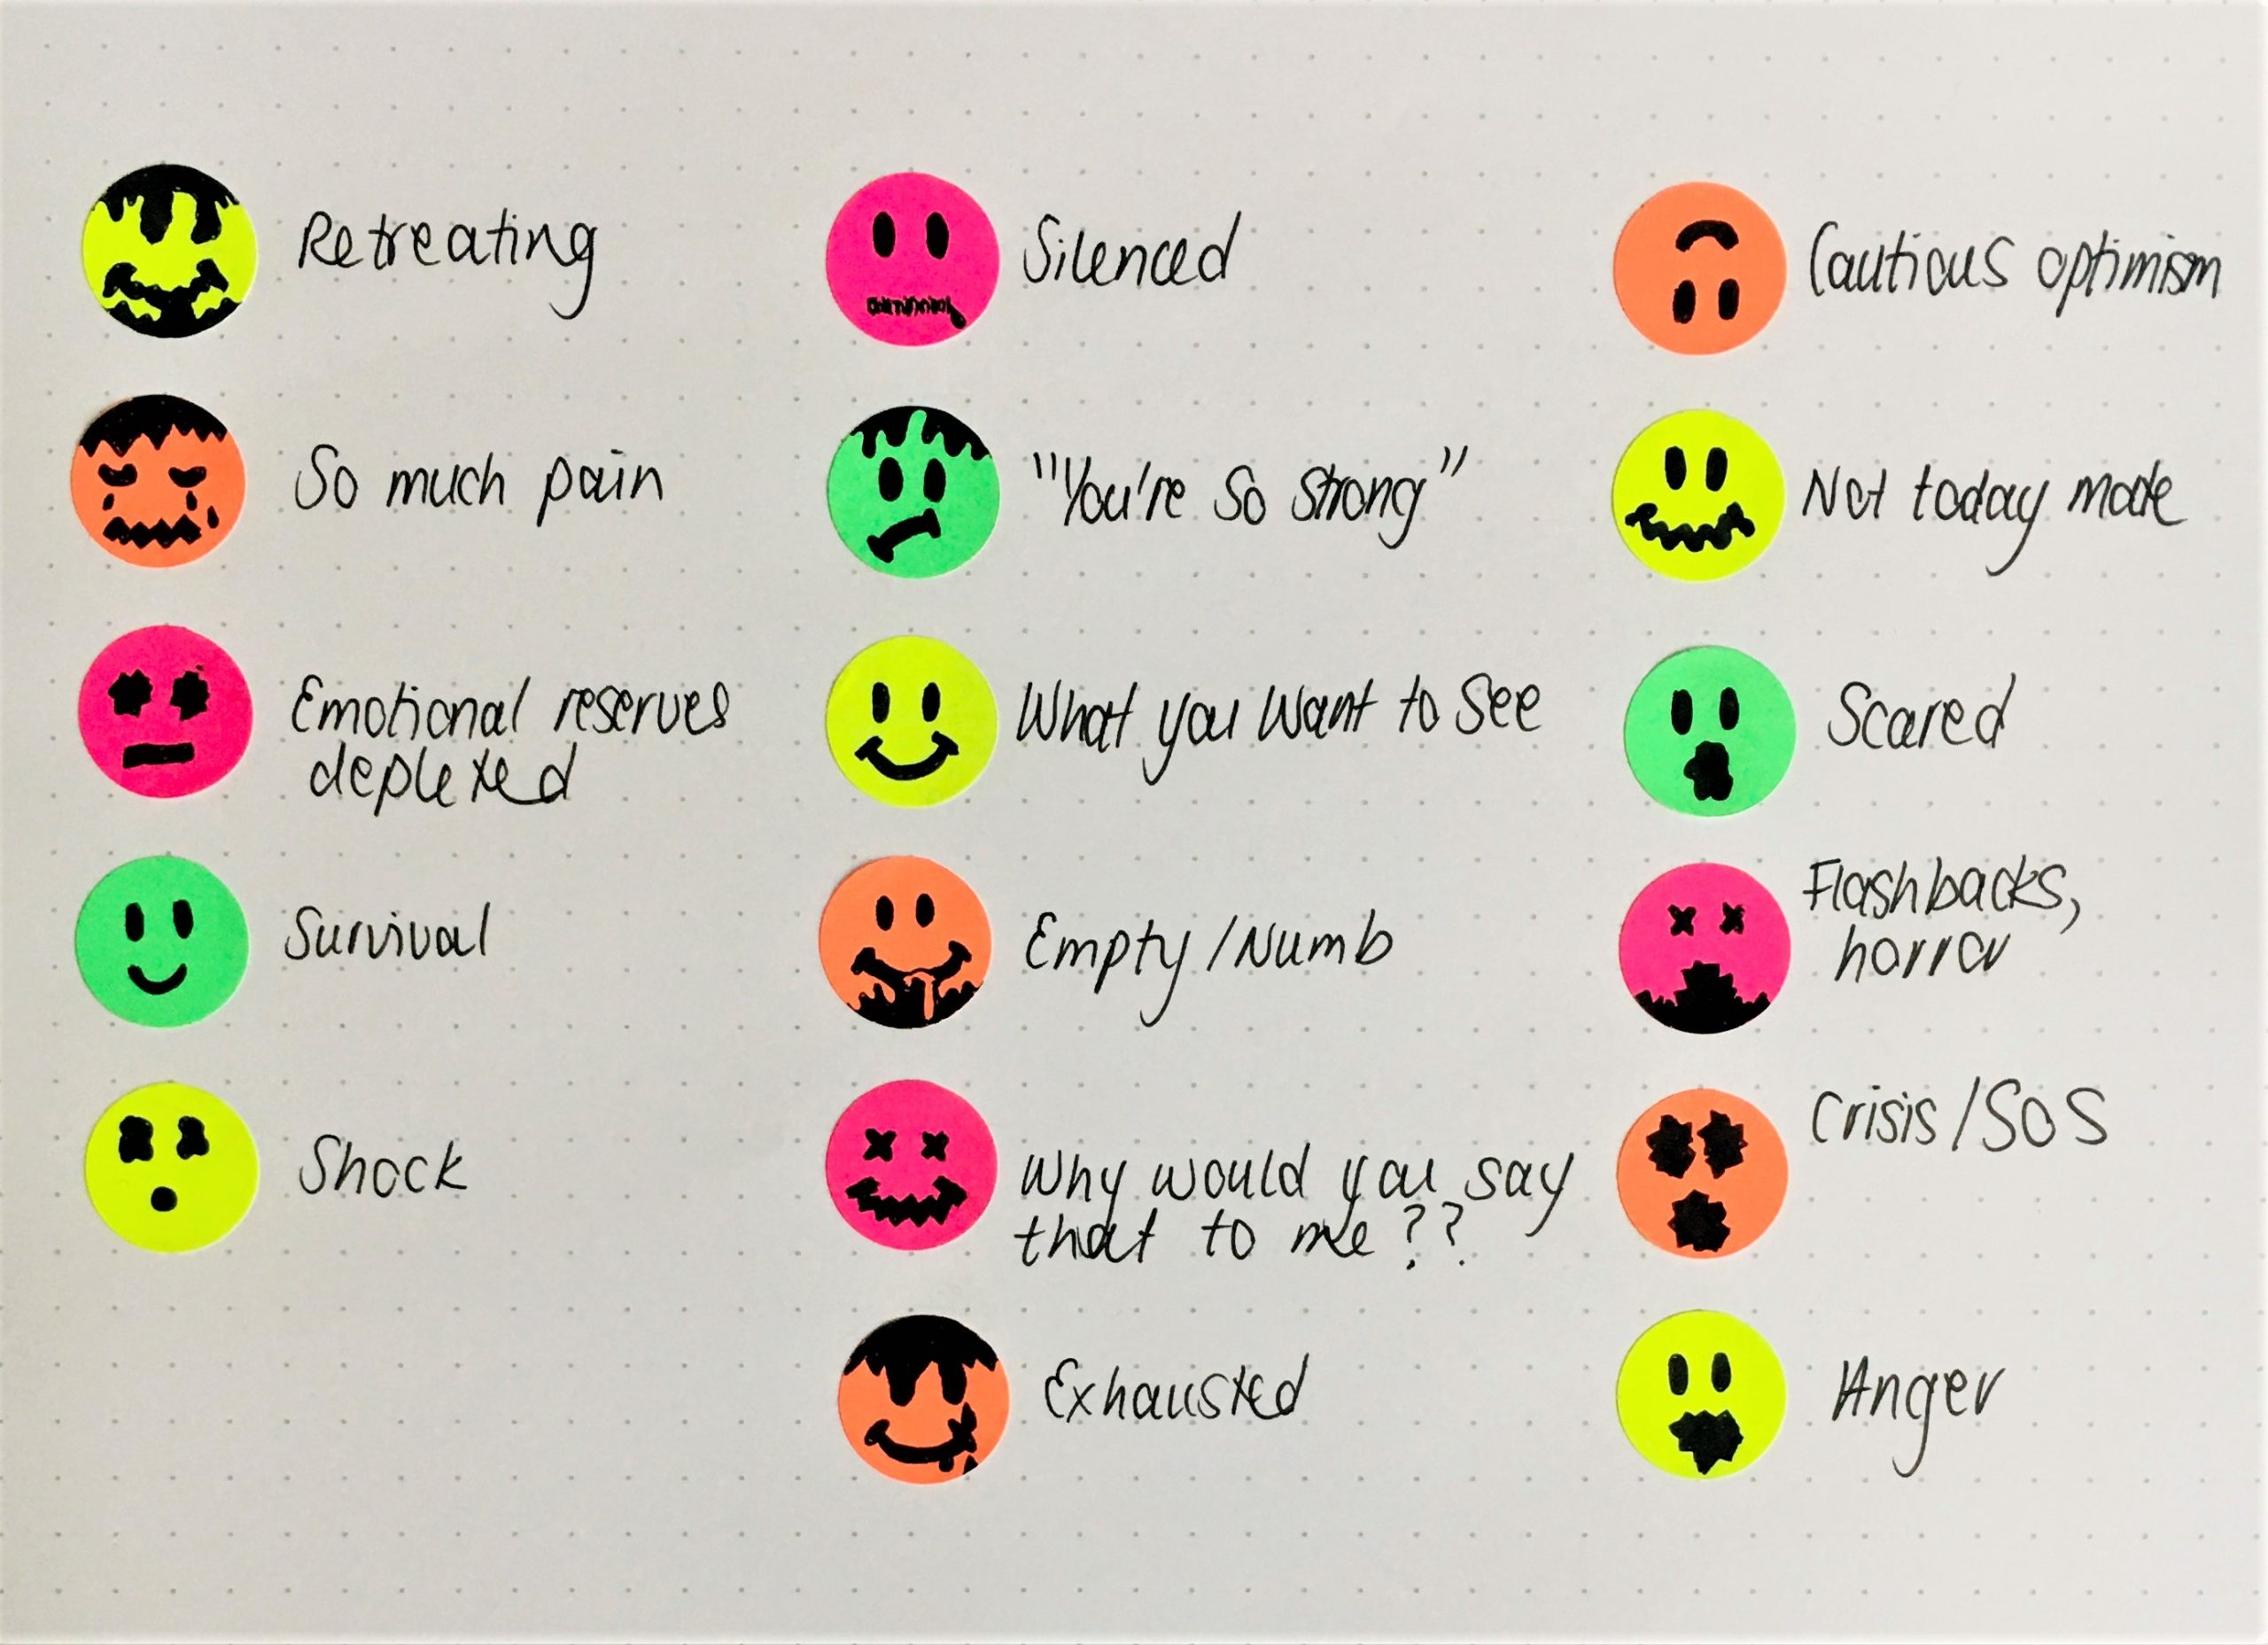 Retreating
So much pain
Emotional reserves
depleted
Survival
Shock
Silenced
"You're so strong"
What you want to see
Empty/Numb
Why would you say
that to me??
Exhausted
Cautious optimism
Not today mode
Scared
Flashbacks,
horror
Crisis/SOS
Anger